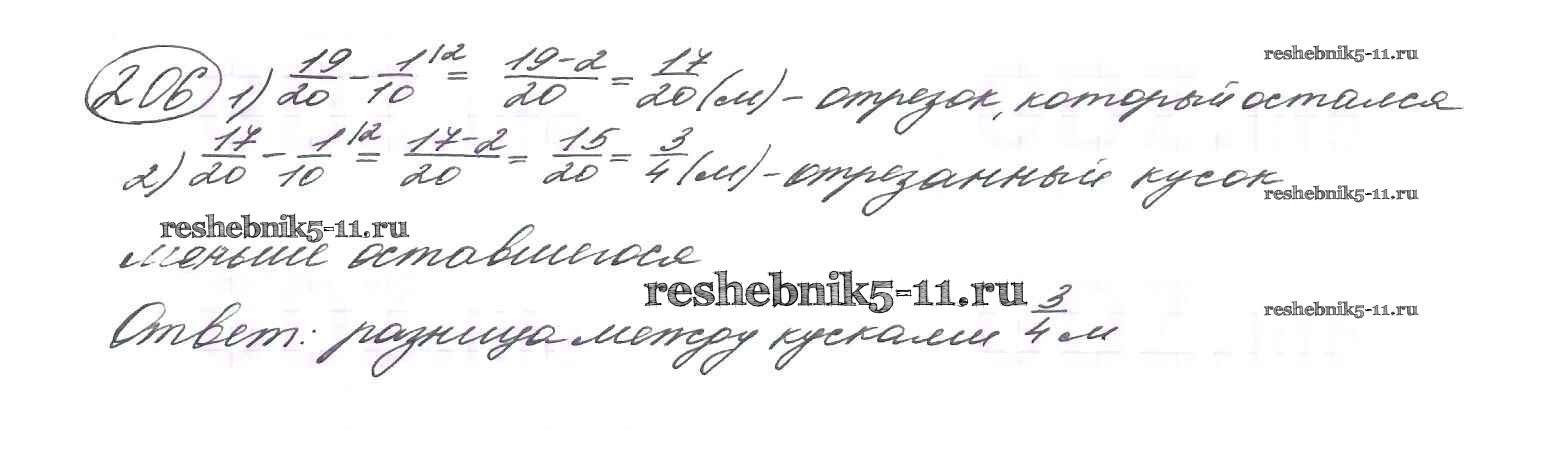 reshebnik5-11.ru
206 1) 19/20 - 1/10 |2 = 19-2/20 = 17/20 (м) - отрезок, который остался
2) 17/20 - 1/10 |2 = 17-2/20 = 15/20 = 3/4 (м) - отрезанный кусок
reshebnik5-11.ru
reshebnik5-11.ru
меньше оставшегося
reshebnik5-11.ru
reshebnik5-11.ru
Ответ: разница между кусками 3/4 м